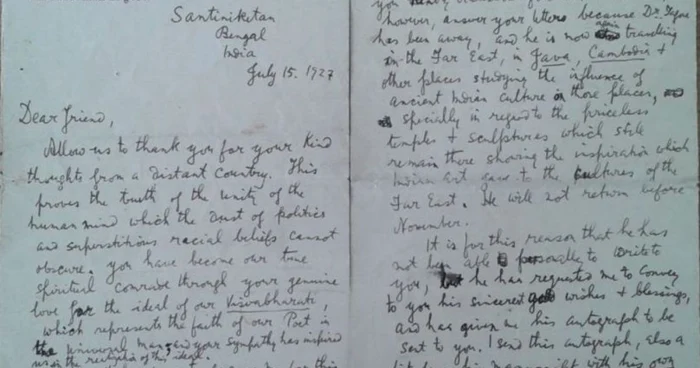 Santiniketan
Bengal
India
July 15. 1927
Dear Friend,
Allow us to thank you for your kind
thoughts from a distant Country. This
proves the truth of the unity of the
human mind which the dust of politics
and superstitious racial beliefs cannot
obscure. you have become our true
spiritual comrade through your genuine
love for the ideal of our Visvabharati,
which represents the faith of our Poet in
the universal man, and your sympathy has inspired
us in the realization of this ideal.
you
however, answer your letters because Dr. Tagore
has been away, and he is now again travelling
in the Far East, in Java, Cambodia +
other places studying the influence of
ancient Indian culture in those places, and
specially in regard to the priceless
temples + sculptures which still
remain there showing the inspiration which
Indian art gave to the cultures of the
Far East. He will not return before
November.
It is for this reason that he has
not been able personally to write to
you, but he has requested me to convey
to you his sincere good wishes + blessings,
and has given me his autograph to be
sent to you. I send this autograph, also a
manuscript with his own